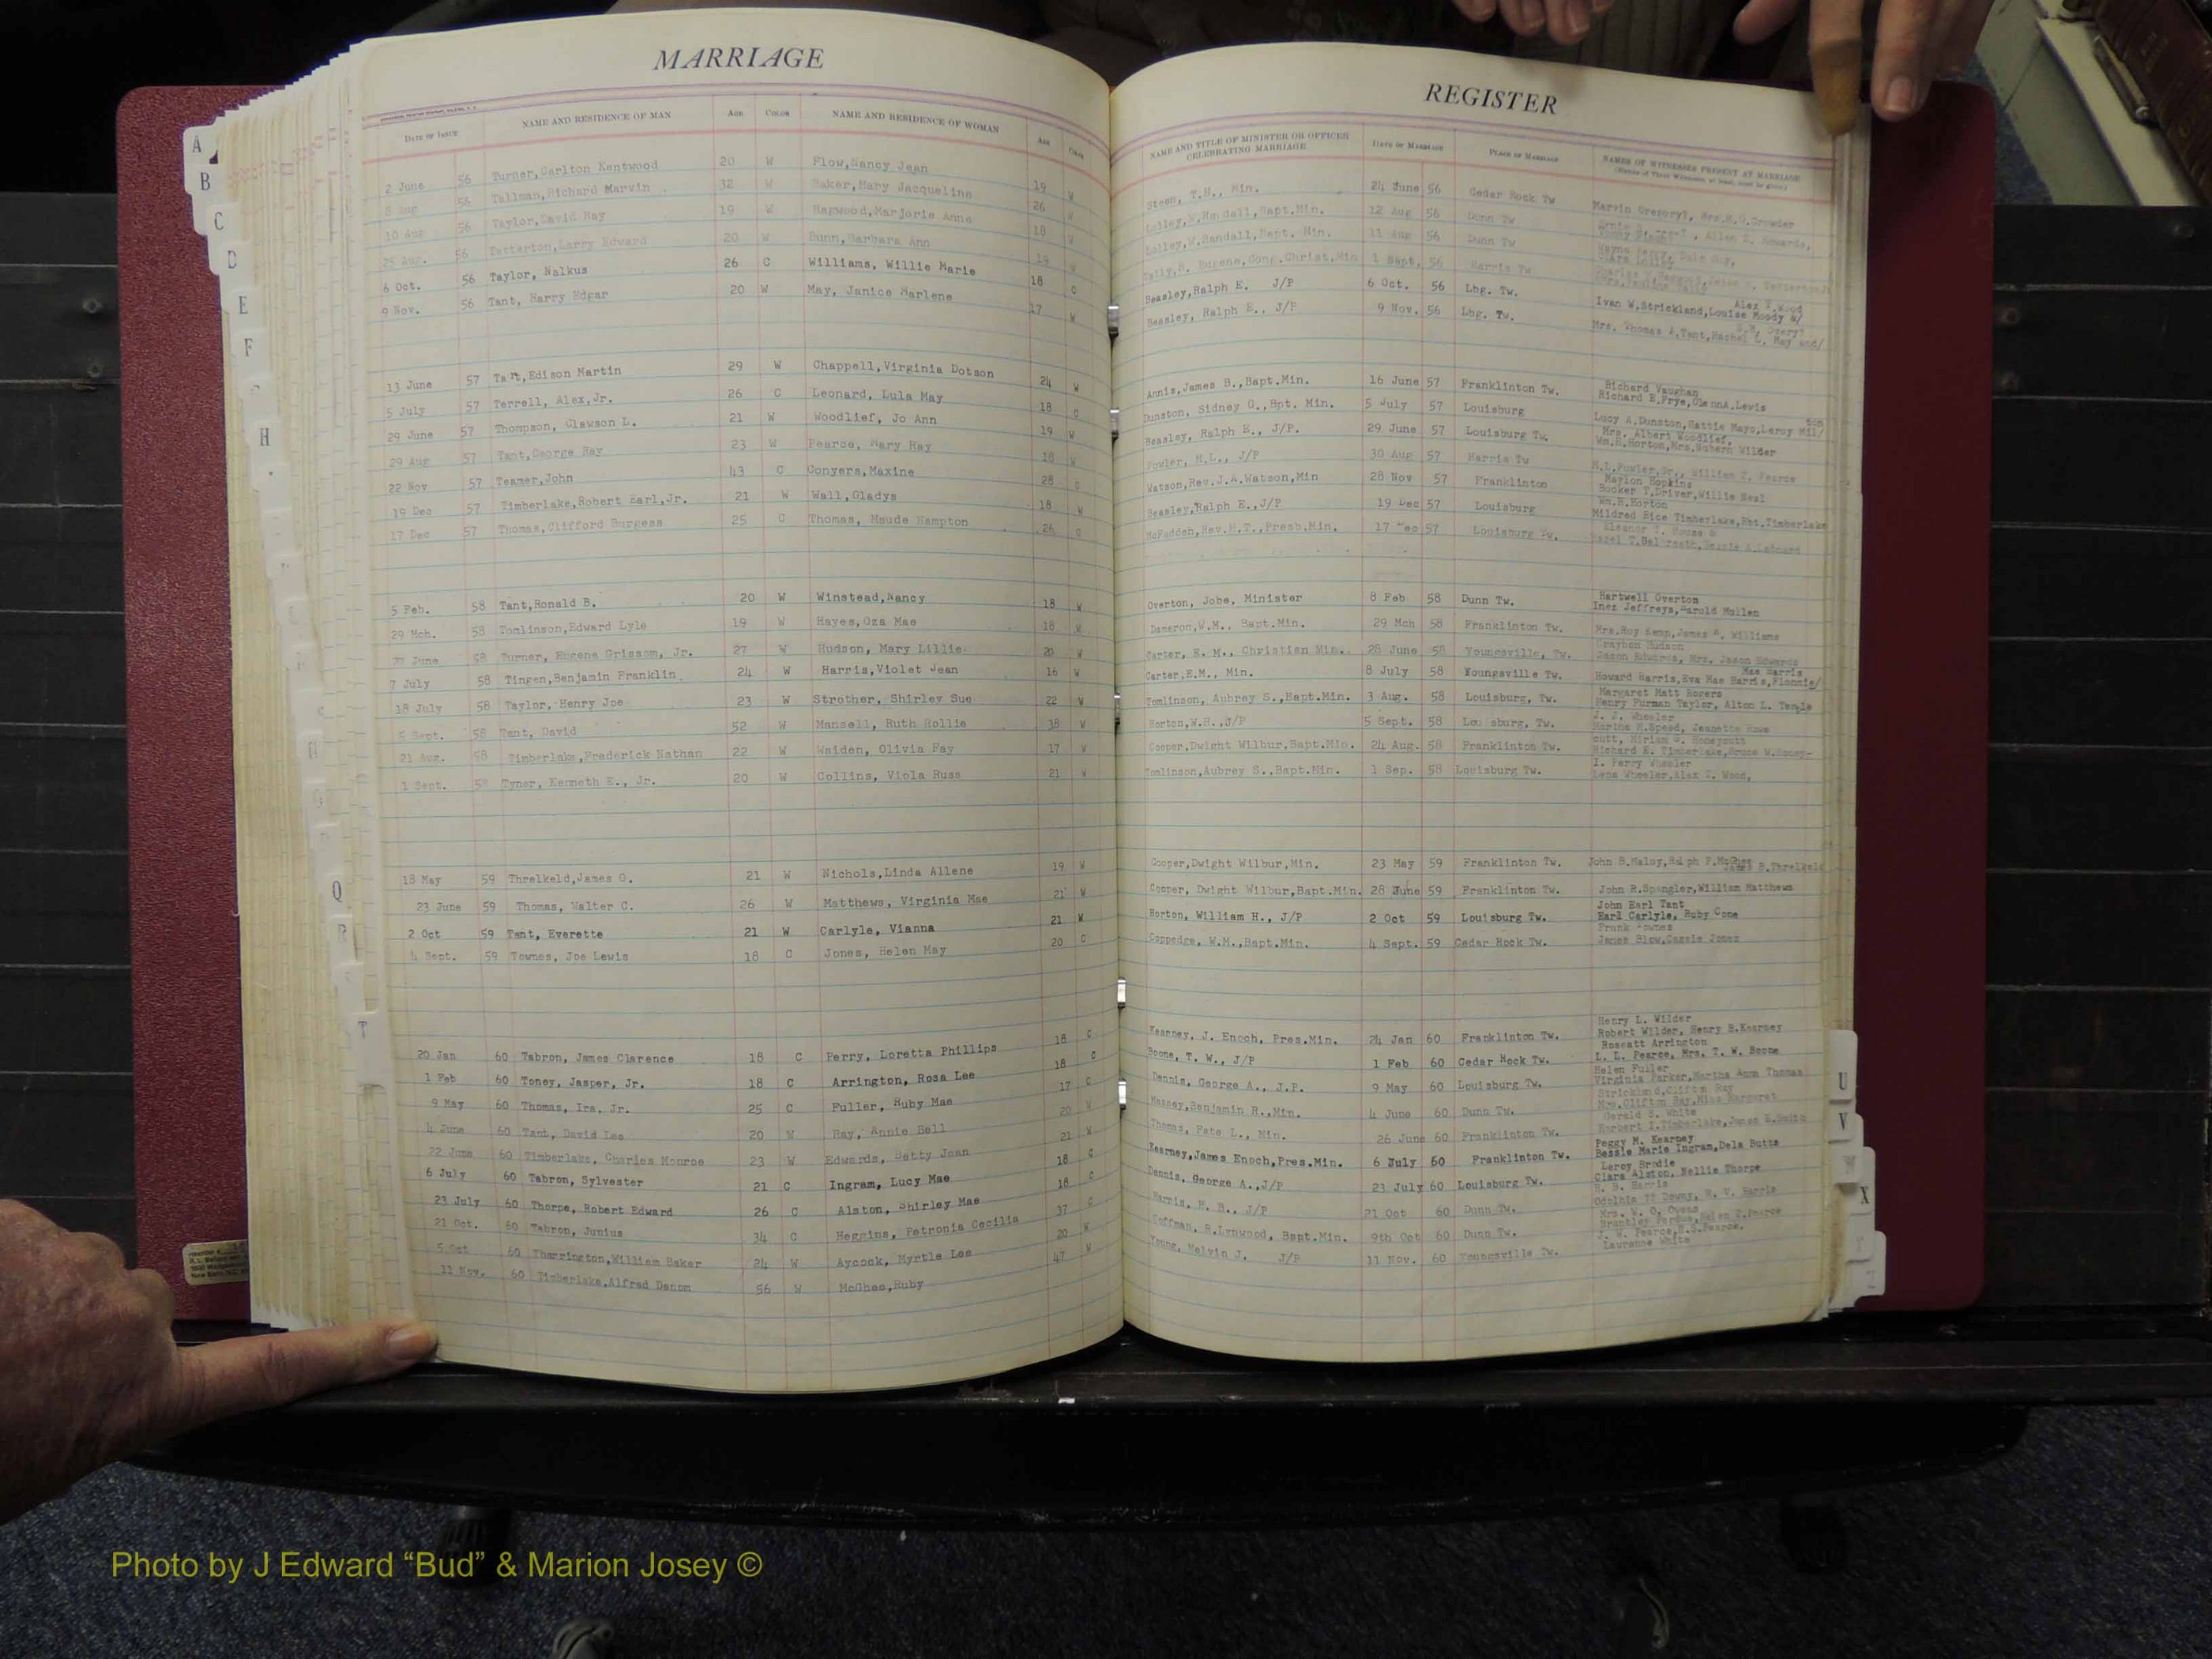 MARRIAGE
DATE OF ISSUE NAME AND RESIDENCE OF MAN AGE COLOR NAME AND RESIDENCE OF WOMAN AGE COLOR
2 June 56 Turner,Carlton Kentwood 20 W Flow,Nancy Jean 19 W
8 Aug 56 Tallman,Richard Marvin 32 W Baker,Mary Jacqueline 26 W
10 Aug 56 Taylor,David Ray 19 W Hagwood,Marjorie Anne 18 W
25 Aug. 56 Tetterton,Larry Edward 20 W Bunn,Barbara Ann 19 W
6 Oct. 56 Taylor, Nalkus 26 C Williams, Willie Marie 18 C
9 Nov. 56 Tant, Harry Edgar 20 W May, Janice Marlene 17 W
13 June 57 Tant,Edison Martin 29 W Chappell,Virginia Dotson 24 W
5 July 57 Terrell, Alex,Jr. 26 C Leonard, Lula May 18 C
29 June 57 Thompson, Clawson L. 21 W Woodlief, Jo Ann 19 W
29 Aug 57 Tant,George Ray 23 W Pearce, Mary Ray 18 W
22 Nov 57 Teamer,John 43 C Conyers,Maxine 28 C
19 Dec 57 Timberlake,Robert Earl,Jr. 21 W Wall,Gladys 18 W
17 Dec 57 Thomas,Clifford Burgess 25 C Thomas, Maude Hampton 26 C
5 Feb. 58 Tant,Ronald B. 20 W Winstead,Nancy 18 W
29 Mch. 58 Tomlinson,Edward Lyle 19 W Hayes,Oza Mae 18 W
27 June 58 Turner, Eugene Grissom, Jr. 27 W Hudson, Mary Lillie 20 W
7 July 58 Tingen,Benjamin Franklin 24 W Harris,Violet Jean 16 W
18 July 58 Taylor, Henry Joe 23 W Strother, Shirley Sue 22 W
5 Sept. 58 Tant, David 52 W Mansell, Ruth Rollie 38 W
21 Aug. 58 Timberlake,Frederick Nathan 22 W Waiden, Olivia Fay 17 W
1 Sept. 58 Tyner, Kenneth E., Jr. 20 W Collins, Viola Russ 21 W
18 May 59 Threlkeld,James O. 21 W Nichols,Linda Allene 19 W
23 June 59 Thomas, Walter C. 26 W Matthews, Virginia Mae 21 W
2 Oct 59 Tant, Everette 21 W Carlyle, Vianna 21 W
4 Sept. 59 Townes, Joe Lewis 18 C Jones, Helen May 20 C
20 Jan 60 Tabron, James Clarence 18 C Perry, Loretta Phillips 18 C
1 Feb 60 Toney, Jasper, Jr. 18 C Arrington, Rosa Lee 18 C
9 May 60 Thomas, Ira, Jr. 25 C Fuller, Ruby Mae 17 C
4 June 60 Tant, David Lee 20 W Ray, Annie Bell 20 W
22 June 60 Timberlake, Charles Monroe 23 W Edwards, Betty Joan 21 W
6 July 60 Tabron, Sylvester 21 C Ingram, Lucy Mae 18 C
23 July 60 Thorpe, Robert Edward 26 C Alston, Shirley Mae 18 C
21 Oct. 60 Tabron, Junius 34 C Heggins, Petronia Cecilia 37 C
5 Oct 60 Tharrington,William Baker 24 W Aycock, Myrtle Lee 20 W
11 Nov. 60 Timberlake,Alfred Denom 56 W McGhee,Ruby 47 W
REGISTER
NAME AND TITLE OF MINISTER OR OFFICER CELEBRATING MARRIAGE DATE OF MARRIAGE PLACE OF MARRIAGE NAMES OF WITNESSES PRESENT AT MARRIAGE
(Names of Three Witnesses, at least, must be given)
Steen, T.H., Min. 24 June 56 Cedar Rock Tw
Lolley,W.Randall,Bapt.Min. 12 Aug 56 Dunn Tw
Lolley,W.Randall,Bapt. Min. 11 Aug 56 Dunn Tw
Eugene,Cong.Christ.Min 1 Sept. 56 Harris Tw
Beasley,Ralph E. J/P 6 Oct. 56 Lbg. Tw. Alex T.Wood
Ivan W.Strickland,Louise Moody &/
Beasley, Ralph E., J/P 9 Nov. 56 Lbg. Tw.
Mrs. Thomas A.Tant,Rachel L. May and/
Annis,James B.,Bapt.Min. 16 June 57 Franklinton Tw. Richard Vaughan
Richard E.Frye,GlennA.Lewis
Dunston, Sidney G.,Bpt. Min. 5 July 57 Louisburg
Lucy A.Dunston,Hattie Mayo,Leroy Mil/ton
Beasley, Ralph E., J/P. 29 June 57 Louisburg Tw. Mrs. Albert Woodlief,
Wm.H.Horton,Mrs.Nubern Wilder
Fowler, H.L., J/P 30 Aug 57 Harris Tw
H.L.Fowler,Sr., William T. Pearce
Watson,Rev.J.A.Watson,Min 28 Nov 57 Franklinton Maylon Hopkins
Booker T.Driver,Willie Neal
Beasley,Ralph E.,J/P 19 Dec 57 Louisburg Wm.H.Horton
Mildred Rice Timberlake,Rbt.Timberlake
McFadden,Rev.H.T.,Presb.Min. 17 Dec 57 Louisburg Tw.
Overton, Jobe, Minister 8 Feb 58 Dunn Tw. Hartwell Overton
Inez Jeffreys,Harold Mullen
Dameron,W.M., Bapt.Min. 29 Mch 58 Franklinton Tw. Mrs.Roy Kemp,James A. Williams
Carter, E. M., Christian Min. 28 June 58 Youngsville, Tw. Graybon Hudson
Jason Edwards, Mrs. Jason Edwards
Carter,E.M., Min. 8 July 58 Youngsville Tw. Mae Harris
Howard Harris,Eva Mae Harris,Flonnie/
Tomlinson, Aubrey S.,Bapt.Min. 3 Aug. 58 Louisburg, Tw. Margaret Matt Rogers
Henry Furman Taylor, Alton L. Temple
Horton,W.H.,J/P 5 Sept. 58 Lou sburg, Tw. J. J. Wheeler
Martha H.Speed, Jeanette Rowe
Cooper,Dwight Wilbur,Bapt.Min. 24 Aug. 58 Franklinton Tw. cutt, Miriam G. Honeycutt
Richard E. Timberlake,Bruce W.Honey-
Tomlinson,Aubrey S.,Bapt.Min. 1 Sep. 58 Louisburg Tw. I. Perry Wheeler
Lena Wheeler,Alex T. Wood,
Cooper,Dwight Wilbur,Min. 23 May 59 Franklinton Tw. John B.Maloy,Ralph P.McGhee
James R.Threlkeld
Cooper, Dwight Wilbur,Bapt.Min. 28 June 59 Franklinton Tw. John R.Spangler,William Matthews
Horton, William H., J/P 2 Oct 59 Louisburg Tw. John Earl Tant
Earl Carlyle, Ruby Cone
Coppedge, W.M.,Bapt.Min. 4 Sept. 59 Cedar Rock Tw. Frank Townes
James Blow,Cassie Jones
Kearney, J. Enoch, Pres.Min. 24 Jan 60 Franklinton Tw. Henry L. Wilder
Robert Wilder, Henry B.Kearney
Boone, T. W., J/P 1 Feb 60 Cedar Rock Tw. Roseatt Arrington
L. L. Pearce, Mrs. T. W. Boone
Dennis, George A., J.P. 9 May 60 Louisburg Tw. Helen Fuller
Virginia Parker,Martha Ann Thomas
Massey,Benjamin R.,Min. 4 June 60 Dunn Tw. Strickland,Clifton Ray
Mrs.Clifton Ray,Miss Margaret
Thomas, Pate L., Min. 26 June 60 Franklinton Tw. Gerald S. White
Herbert I.Timberlake,James E.Smith
Kearney,James Enoch,Pres.Min. 6 July 60 Franklinton Tw. Peggy M. Kearney
Bessie Marie Ingram,Dela Butts
Dennis, George A.,J/P 23 July 60 Louisburg Tw. Leroy Brodie
Clara Alston, Nellie Thorpe
Harris, H. B., J/P 21 Oct 60 Dunn Tw. H. B. Harris
Downy, R. V. Harris
Coffman, R.Lynwood, Bapt.Min. 9th Oct 60 Dunn Tw. Mrs. W. O. Owens
Brantley Perdue,Helen D.Pearce
Young, Melvin J. J/P 11 Nov. 60 Youngsville Tw. J. W. Pearce,E.S.Pearce,
Lawrance White
A
B
C
D
E
F
H
Q
R
T
U
V
X
Photo by J Edward “Bud” & Marion Josey ©